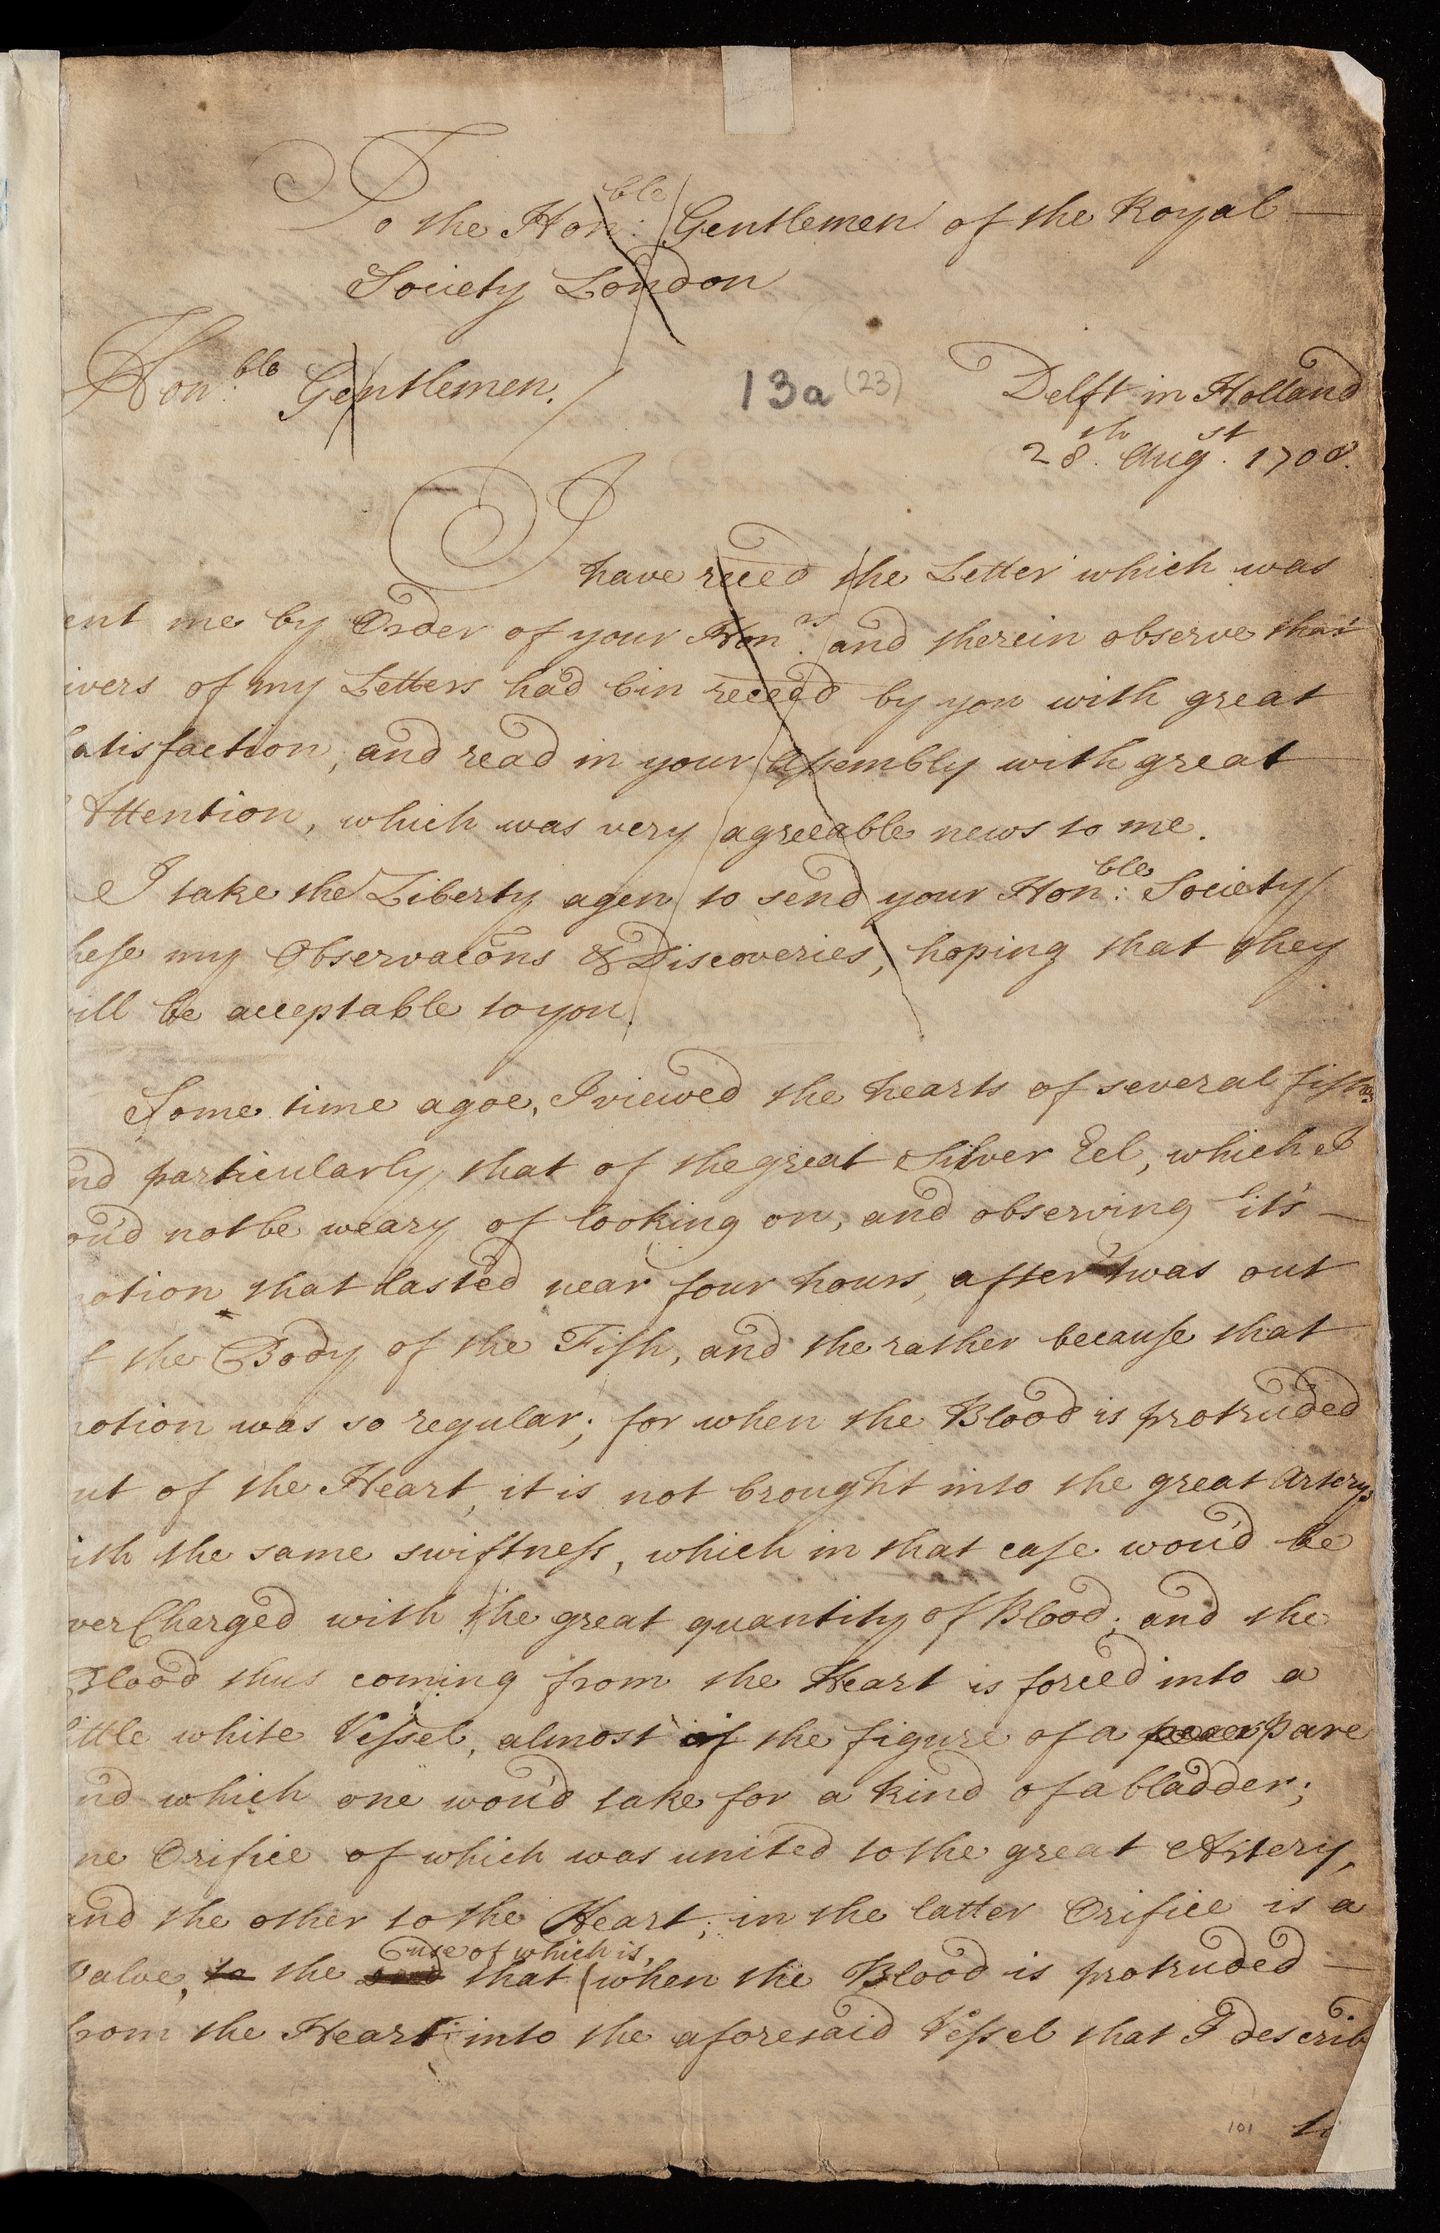 To the Hon:ble Gentlemen of the Royal
Society London
Hon:ble Gentlemen.
13a (23)
Delft in Holland
28th. Augst. 1708.
I have rceed the Letter which was
ent me by Order of your Honrs. and therein observe that
ivers of my Letters had bin receed by you with great
atisfaction, and read in your Assembly with great
Attention, which was very agreeable news to me.
I take the Liberty agen to send your Hon:ble Society
hese my Observacōns & Discoveries, hoping that they
ill be acceptable to you.
Some time agoe, I viewed the hearts of several fishes
nd particularly that of the great Silver Eel, which I
ou'd not be weary of looking on, and observing it's
otion that lasted near four hours, after 'twas out
f the Body of the Fish, and the rather because that
otion was so regular; for when the Blood is protruded
ut of the Heart, it is not brought into the great Artery
ith the same swiftness, which in that case wou'd be
ver Charged with the great quantity of Blood; and the
Blood thus coming from the Heart is forced into a
ittle white Vessel, almost of the figure of a peare pare
nd which one wou'd take for a kind of a bladder;
ne Orifice of which was united to the great Artery,
and the other to the Heart; in the latter Orifice is a
use of which is,
Valve, to the end that when the Blood is protruded
from the Heart into the aforesaid Vessel that I describ
101